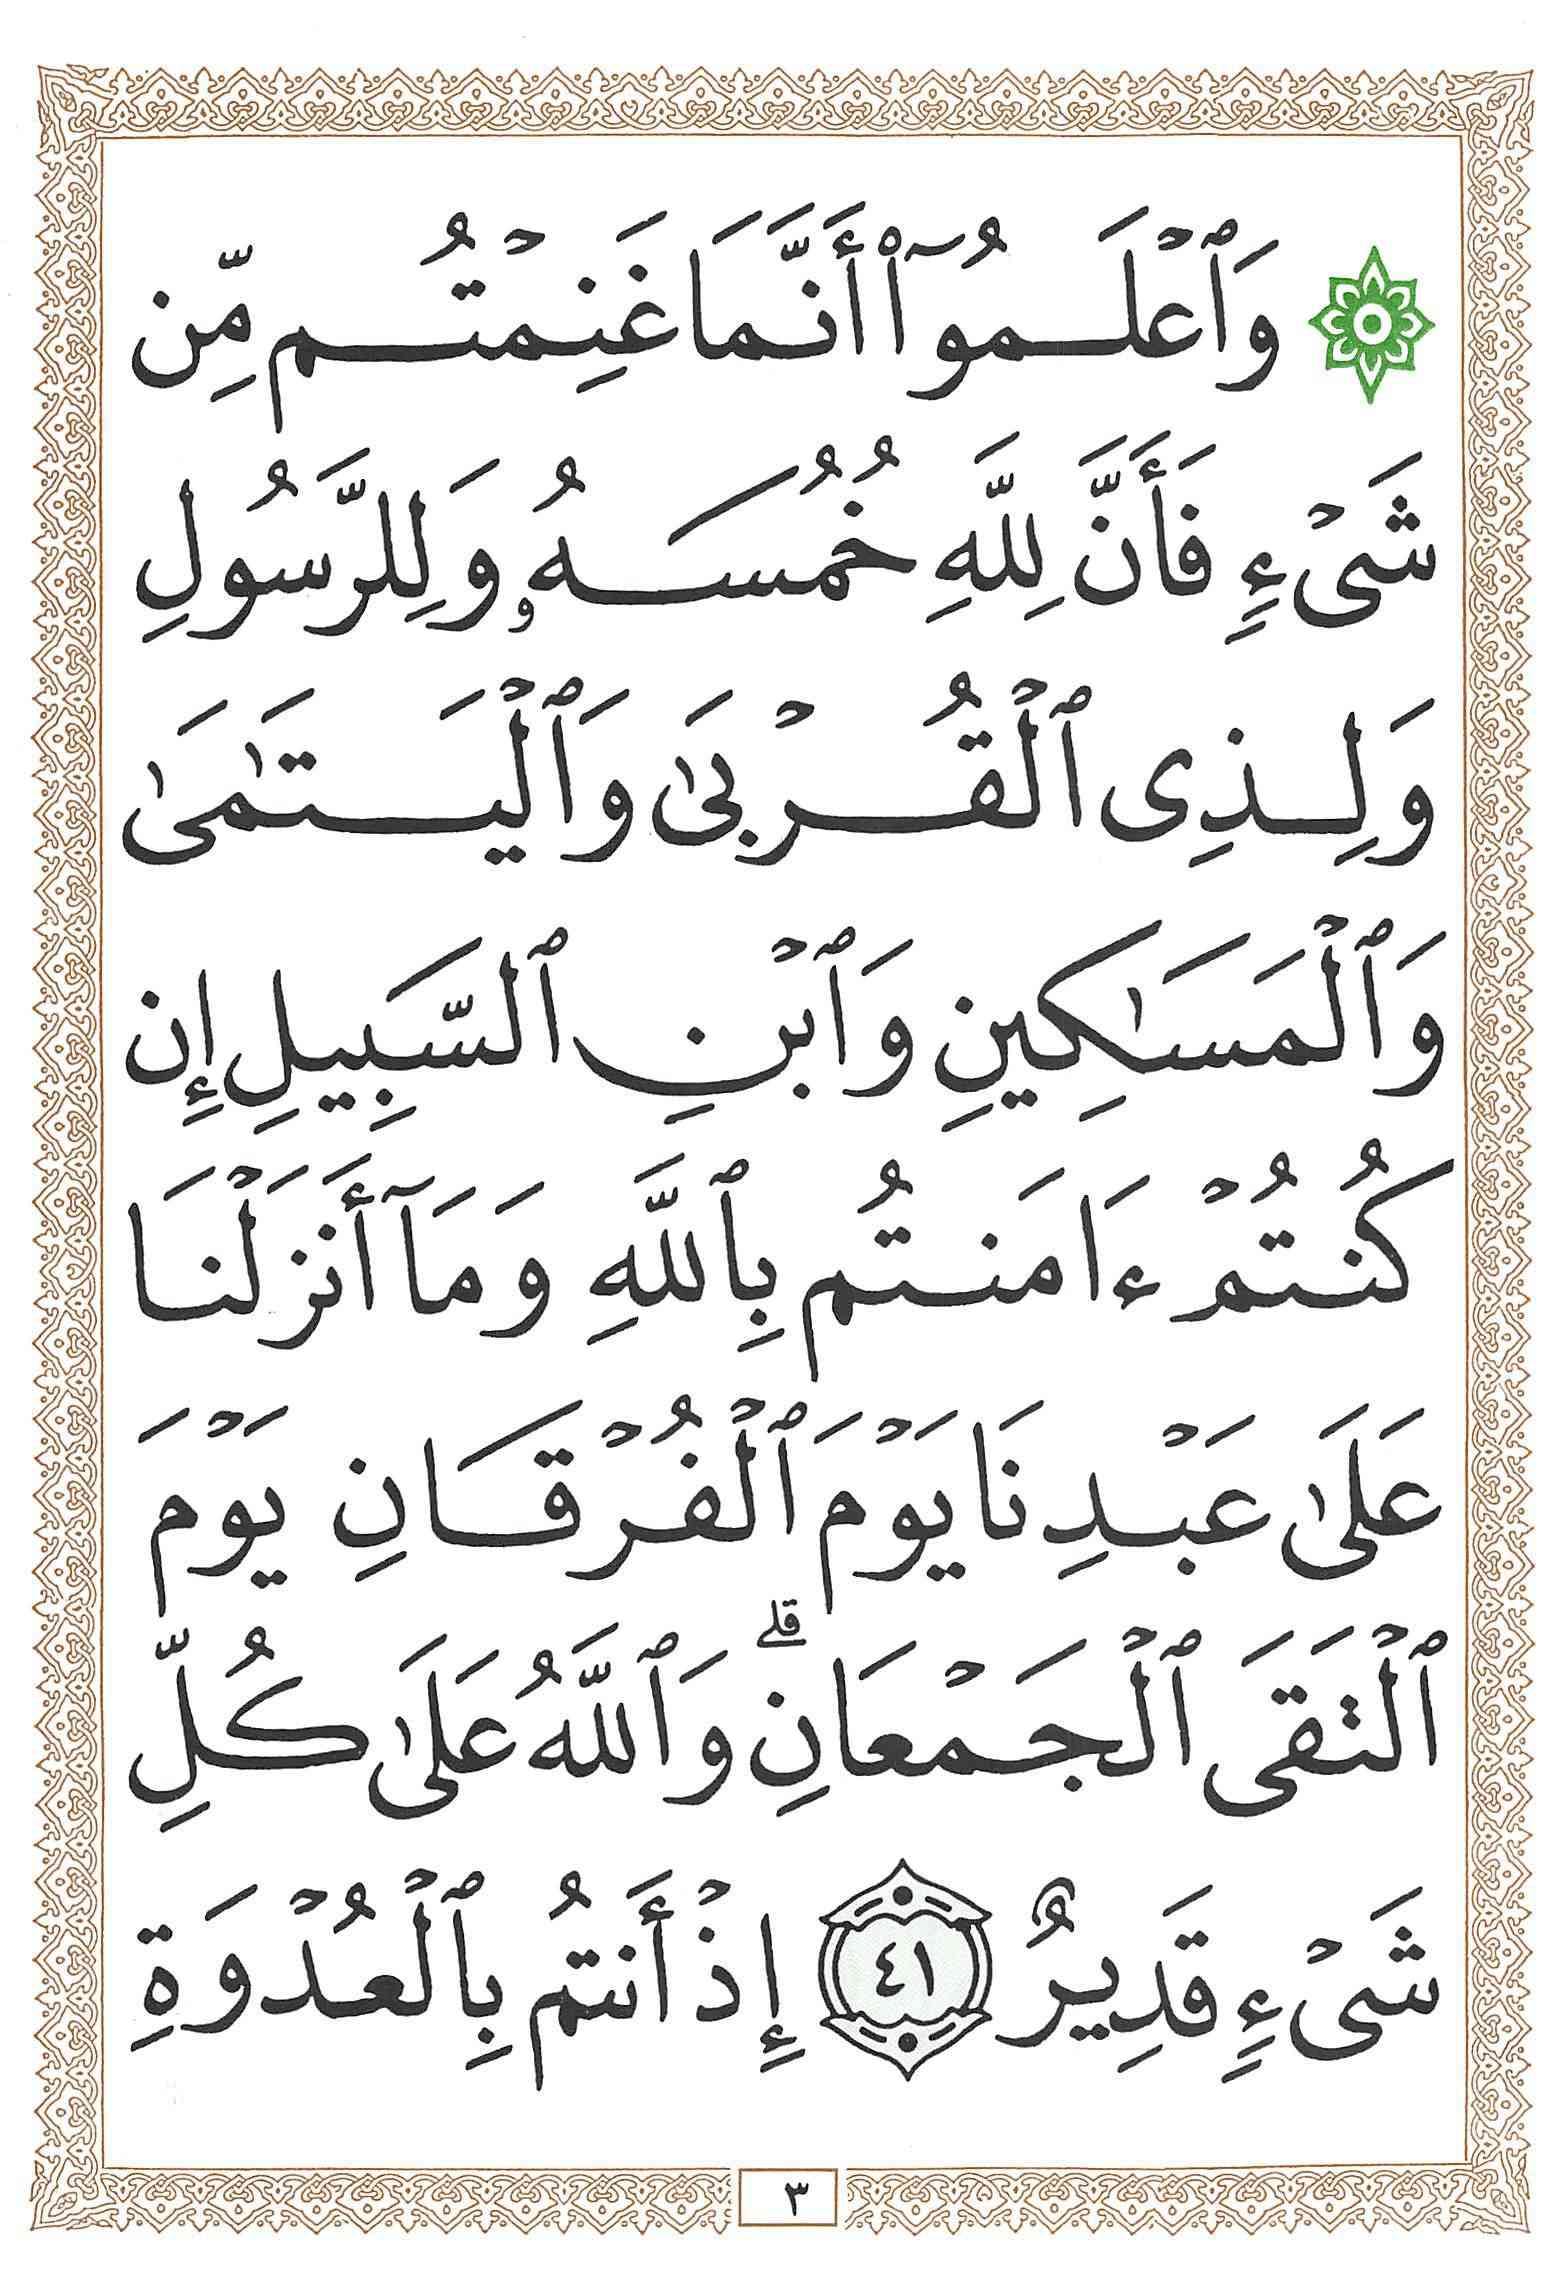 ۞ وَٱعْلَمُوٓا۟ أَنَّمَا غَنِمْتُم مِّن
شَىْءٍ فَأَنَّ لِلَّهِ خُمُسَهُۥ وَلِلرَّسُولِ
وَلِذِى ٱلْقُرْبَىٰ وَٱلْيَتَـٰمَىٰ
وَٱلْمَسَـٰكِينِ وَٱبْنِ ٱلسَّبِيلِ إِن
كُنتُمْ ءَامَنتُم بِٱللَّهِ وَمَآ أَنزَلْنَا
عَلَىٰ عَبْدِنَا يَوْمَ ٱلْفُرْقَانِ يَوْمَ
ٱلْتَقَى ٱلْجَمْعَانِ ۗ وَٱللَّهُ عَلَىٰ كُلِّ
شَىْءٍ قَدِيرٌ ٤١ إِذْ أَنتُم بِٱلْعُدْوَةِ
٣